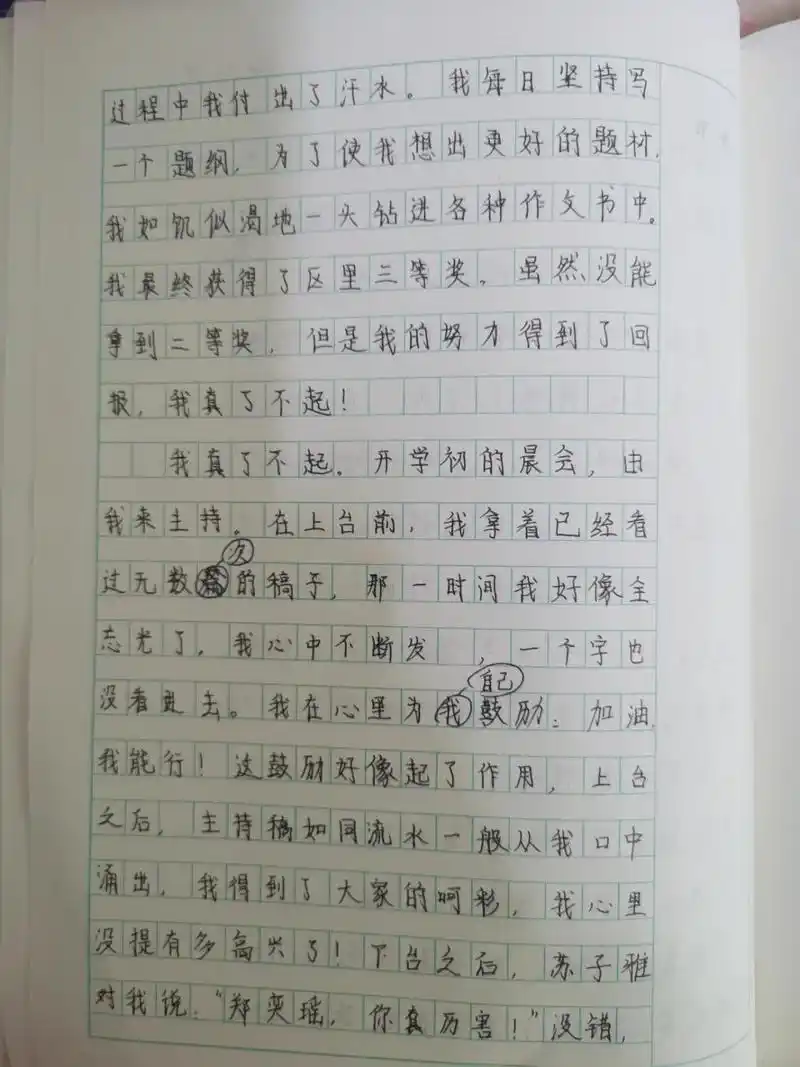 过程中我付出了汗水。我每日坚持写
一个题纲，为了使我想出更好的题材，
我如饥似渴地一头钻进各种作文书中。
我最终获得了区里三等奖。虽然没能
拿到二等奖，但是我的努力得到了回
报，我真了不起！
我真了不起。开学初的晨会，由
我来主持。在上台前，我拿着已经看
过无数次的稿子，那一时间我好像全
忘光了，我心中不断发，一个字也
没看进去。我在心里为自己鼓励：加油，
我能行！这鼓励好像起了作用，上台
之后，主持稿如同流水一般从我口中
涌出，我得到了大家的呵彩，我心里
没提有多高兴了！下台之后，苏子雅
对我说：“郑奕瑶，你真厉害！”没错，